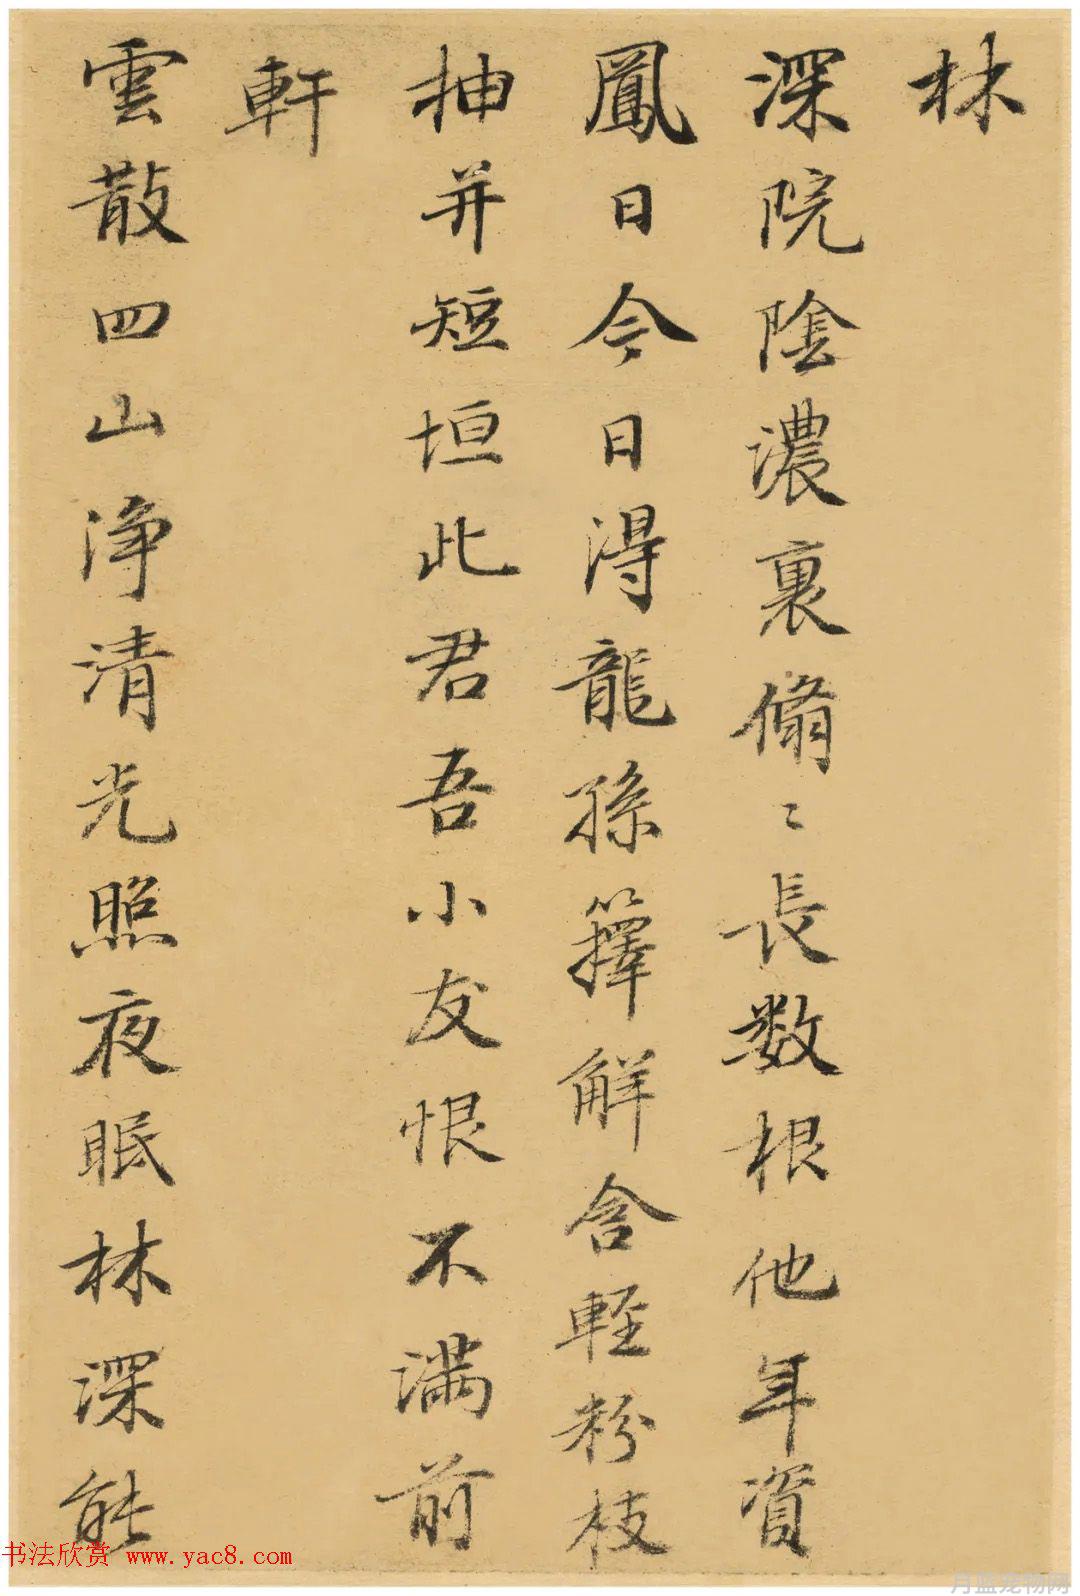 林
深院陰濃裏脩〻長数根他年資
鳳日今日得龍孫籜解含輕粉枝
抽并短垣此君吾小友恨不满前
軒
雲散四山浄清光照夜眠林深能
书法欣赏 www.yac8.com
月蓝宠物网